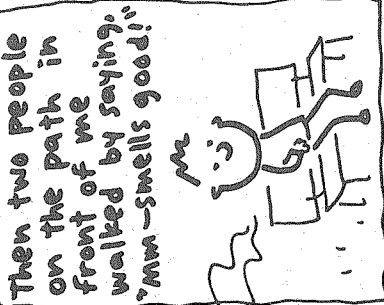 Then two people
on the path in
front of me
walked by saying,
"Mm—Smells good!"